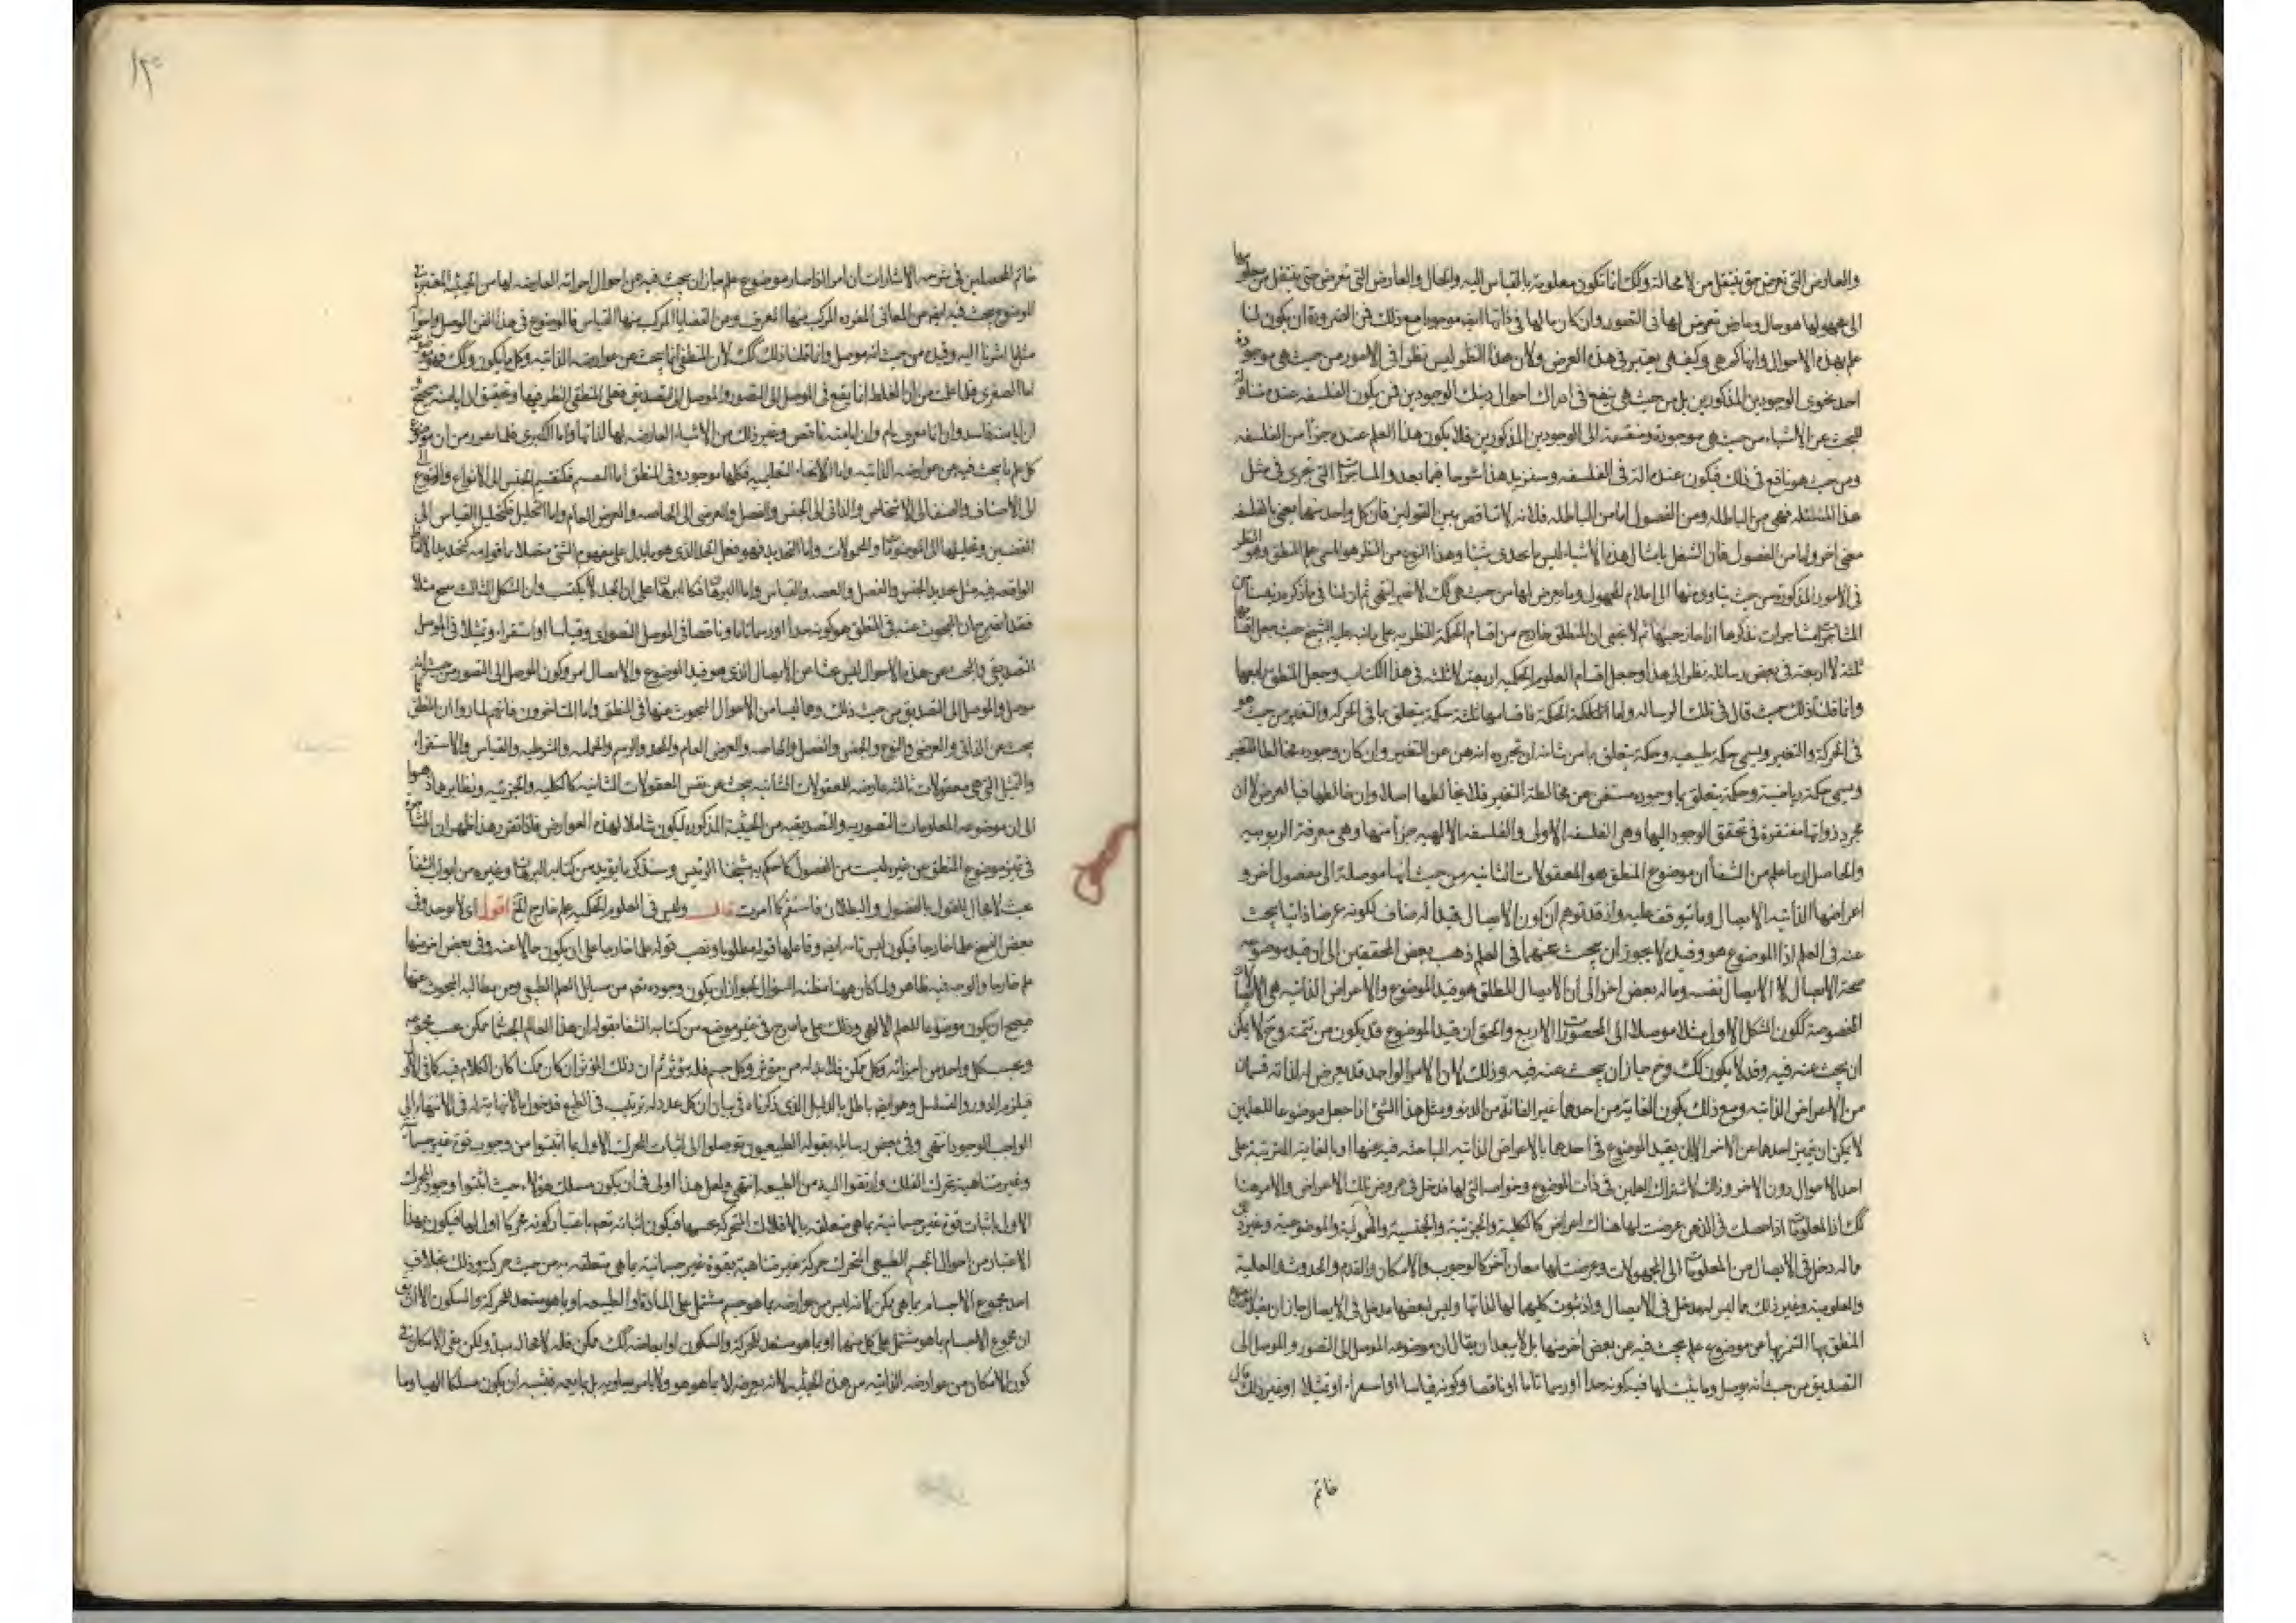 والعارض التي تعرض حتى ينتقل من لا محالة وكك انما تكون معلومة بالقياس اليه والحال والعارض التي تعرض حتى ينتقل من معلومها
الى مجهولها هو حال وعارض تعرض لها في التصور وان كان ما لها في ذاتها ايضا موجودا مع ذلك فمن الضرورة ان يكون لنا
علم بهذه الاحوال وانها كم هي وكيف هي يعتبر في هذه العرض ولان هذا النظر ليس نظرا في الامور من حيث هي موجودة
احد نحوى الوجودين المذكورين بل من حيث هي ينفع في ادراك احوال ذينك الوجودين فمن يكون الفلسفه عنده متناولة
للبحث عن الاشياء من حيث هي موجودة ومنقسمة الى الوجودين المذكورين فلا يكون هذا العلم عنده جزأ من الفلسفه
ومن حيث هو نافع في ذلك فيكون عنده آلة في الفلسفه وسنزيد هذا شرحا فيما بعد والمشاجرات التي تجرى في مثل
هذا المسئله فهي من الباطله ومن الفضول اما من الباطله فلانه لا تناقض بين القولين فان كل واحد منهما يعنى بالفلسفه
معنى آخر واما من الفضول فان الشغل بامثال هذه الاشياء ليس مما يجدى شيئا وهذا النوع من النظر هو المسمى علم المنطق وهو النظر
في الامور المذكورة من حيث يتادى منها الى اعلام المجهول وما يعرض لها من حيث هي كك لا غير انتهى ثم ان لنا فيما ذكره
ثلثة لا اربعة في بعض رسائله نظر الى هذا وجعل اقسام العلوم الحكمية اربعة لا ثلثة في هذا الكتاب وجعل المنطق رابعها
وانما قلنا ذلك حيث قال في تلك الرساله واما الحكمة فاقسامها ثلثة حكمة يتعلق بما في الحركة والتغير من حيث هو
في الحركة والتغير ويسمى حكمة طبيعيه وحكمة يتعلق بما من شانه ان تجرده الذهن عن التغير وان كان وجوده مخالطا للتغير
ويسمى حكمة رياضية وحكمة يتعلق بما وجوده مستغن عن مخالطة التغير فلا يخالطها اصلا وان خالطها فبالعرض لا ان
مجرد ذواتها مفتقرة في تحقق الوجود اليها وهي الفلسفه الاولى والفلسفه الالهيه جزأ منها وهي معرفة الربوبيه
والحاصل ان ما علم من الشفأ ان موضوع المنطق هو المعقولات الثانيه من حيث انها موصلة الى
اعراضها الذاتيه الايصال وما يتوقف عليه واذ قد توهم ان كون الايصال قيدا له ضاف لكونه عرضا ذاتيا يبحث
عنه في العلم اذا الموضوع هو وقيده لا يجوز ان يبحث عنهما في العلم ذهب بعض المحققين الى ان قيد موضوعه
صحة الايصال لا الايصال نفسه وماله بعض آخر الى ان الايصال المطلق هو قيد الموضوع والاعراض الذاتيه هي الايصالات
المخصوصة ككون الشكل الاول مثلا موصلا الى المحصورات الاربع والحق ان قيد الموضوع قد يكون من تتمته وح لا يمكن
ان يبحث عنه فيه وقد لا يكون كك وح جاز ان يبحث عنه فيه وذلك لان الامر الواحد قد يعرض له لذاته قسمان
من الاعراض الذاتيه ومع ذلك يكون الغاية من احدهما غير الغاية من الاخر ومثل هذا الشئ اذا جعل موضوعا للعلمين
لا يمكن ان يتميز احدهما عن الاخر الا بان يقيد الموضوع في احدهما بالاعراض الذاتيه الباحثه فيه عنها او بالغاية المترتبة على
احد الاحوال دون الاخر وذلك لاشتراك العلمين في ذات الموضوع وخواصه التي لها مدخل في عروض تلك الاعراض والامر هنا
كك اذ المعلومات اذا حصلت في الذهن عرضت لها هناك اعراض كالكلية والجزئية والجنسية والمحمولية والموضوعية وغيره
ماله دخل في الايصال من المعلومات الى المجهولات وعرضت لها معان آخر كالوجوب والامكان والقدم والحدوث والعلية
والمعلولية وغير ذلك مما ليس له مدخل في الايصال واذ ثبوت كليهما لها لذاتها وليس لبعضها مدخل في الايصال جاز ان يقيد موضوع
المنطق بها التميزها عن موضوع علم يبحث فيه عن بعض آخر منها بل لا يبعد ان يقال ان موضوعه الموصل الى التصور والموصل الى
التصديق من حيث انه يوصل وما يثبت لها فيه كونه حدا او رسما تاما او ناقصا وكونه قياسا او استقراء او تمثيلا او غير ذلك قال
خاتم
١٢٥
خاتم المحصلين في شرحه الاشارات ان امر الذا صار موضوع علم جاز ان يبحث فيه عن احوال اجزائه العارضه لها من الحيث المعتبر في
الموضوع يبحث فيه ايضا عن المعانى المفرده المركب منها المعرف ومن القضايا المركب منها القياس فالموضوع في هذا الفن الموصل واجزاؤه
مثلما اشرنا اليه وقيده من حيث انه موصل وانما قلنا ذلك كك لان المنطقى انما يبحث عن عوارضه الذاتيه وكل ما يكون كك فهو موضوعه
اما الصغرى فلما علمت من ان الغلط انما يقع في الموصل الى التصور والموصل الى التصديق فعلى المنطقى النظر فيها وتحقيق ان ايا منه صحيح
ان ايا منه فاسد وان ايا منه تام وان ايا منه ناقص وغير ذلك من الاشياء العارضه لها لذاتها واما الكبرى فلما تقرر من ان موضوع
كل علم ما يبحث فيه عن عوارضه الذاتيه واما الانحاء التعليميه فكلها موجود في المنطق اما التقسيم فكتقسيم الجنس الى الانواع والنوع
الى الاصناف والصنف الى الاشخاص والذاتى الى الجنس والفصل والعرضى الى الخاصه والعرض العام واما التحليل فكتحليل القياس الى
القضيتين وتحليلها الى الموضوعات والمحمولات واما التحديد فهو فعل الحد الذى هو ما يدل على مفهوم الشئ مفصلا
الواقعه فيه مثل تحديد الجنس والفصل والقياس واما البرهان فكالبرهان على ان الحد لا يكتسب وان الشكل الثالث مثلا
فقد اتضح ان المبحوث عنه في المنطق هو كونه حدا او رسما تاما وناقصا في الموصل التصورى وقياسا او استقراء وتمثيلا في الموصل
التصديقى والبحث عن هذه الاحوال ليس بحثا عن الايصال الذى هو قيد الموضوع والايصال اى كون الموصل الى التصور من حيث انه
موصل والموصل الى التصديق من حيث ذلك وهما ليسا من الاحوال المبحوث عنها في المنطق واما المتاخرون فانهم لما راوا ان المنطق
يبحث عن الذاتى والعرضى والنوع والجنس والفصل والخاصه والعرض العام والحد والرسم والحمليه والشرطيه والقياس والاستقراء
والتمثيل التي هي معقولات ثالثه عارضه للمعقولات الثانيه يبحث عن نفس المعقولات الثانيه كالكليه والجزئيه ونظايرها ذهبوا
الى ان موضوعه المعلومات التصوريه والتصديقيه من الحيثية المذكوره ليكون شاملا لهذه العوارض فاذا تقرر هذا ظهر ان
في تميز موضوع المنطق عن غيره ليست من الفضول كما حكم به شيخنا الرئيس وسنذكر ما يؤيده من كتاب البرهان وغيره من ابواب الشفأ
بحيث لا مجال للقول بالفضول والبطلان فاستقم كما امرت قال وليس في العلوم الحكميه علم خارج الخ اقول اى لا يوجد وفي
بعض النسخ علما خارجا فيكون ليس تامه ايضا وفاعلها قوله مطلوبا ونصب قوله علما خارجا على ان يكون حالا عنه وفي بعض آخر منها
علم خارجا والوجه فيه ظاهر ولما كان ههنا مظنة السؤال بجواز ان يكون وجوده تعم من مسايل العلم الطبيعى ومن مطالبه المبحوث عنها
فيصح ان يكون موضوعا للعلم الالهى وذلك على ما صرح في غير موضع من كتابه الشفا بقوله ان هذا العالم الجسمانى ممكن بحسب مجموعه
وبحسب كل واحد من اجزائه وكل ممكن فلا بد له من مؤثر وكل جسم فله مؤثر ثم ان ذلك المؤثر ان كان ممكنا كان الكلام فيه كما في الاول
فيلزم الدور والتسلسل وهو ايضا باطل بالدليل الذى ذكرناه في بيان ان كل عدد له ترتيب في الطبع فدخول ما لا نهاية له في الانتهاء الى
الواجب الوجود انتهى وفي بعض رسايله بقوله الطبيعيون توصلوا الى اثبات المحرك الاول بما اثبتوا من وجوب قوة غير جسمانية
وغير متناهية تحرك الفلك وارتقوا اليه من الطبيعه انتهى ولعل هذا اولى فان يكون مسلك هؤلاء حيث اثبتوا وجود المحرك
الاول باثبات قوة غير جسمانية بما هي متعلقه بالافلاك المتحركه فيكون اثباته تعم باعتبار كونه محركا اول لها فيكون بهذا
الاعتبار من احوال الجسم الطبيعى المتحرك حركة غير متناهية بقوة غير جسمانية بما هي متعلقه به من حيث حركته وذلك بخلاف
اخذ مجموع الاجسام بما هي ممكن لانه ليس من عوارضه بما هو جسم مشتمل على المادة او الطبيعه او بما هو مستعد للحركة والسكون الا ان يق
ان مجموع الاجسام بما هو مشتمل على كل منهما او بما هو مستعد للحركة والسكون او ابعاضه كك ممكن فله لا محاله مبدأ ولكن بقى الاشكال في
كون الامكان من عوارضه الذاتيه من هذه الحيثيه لانه يعرضه لا بما هو هو ولا فيشبه ان يكون مسلكا الهيا وما